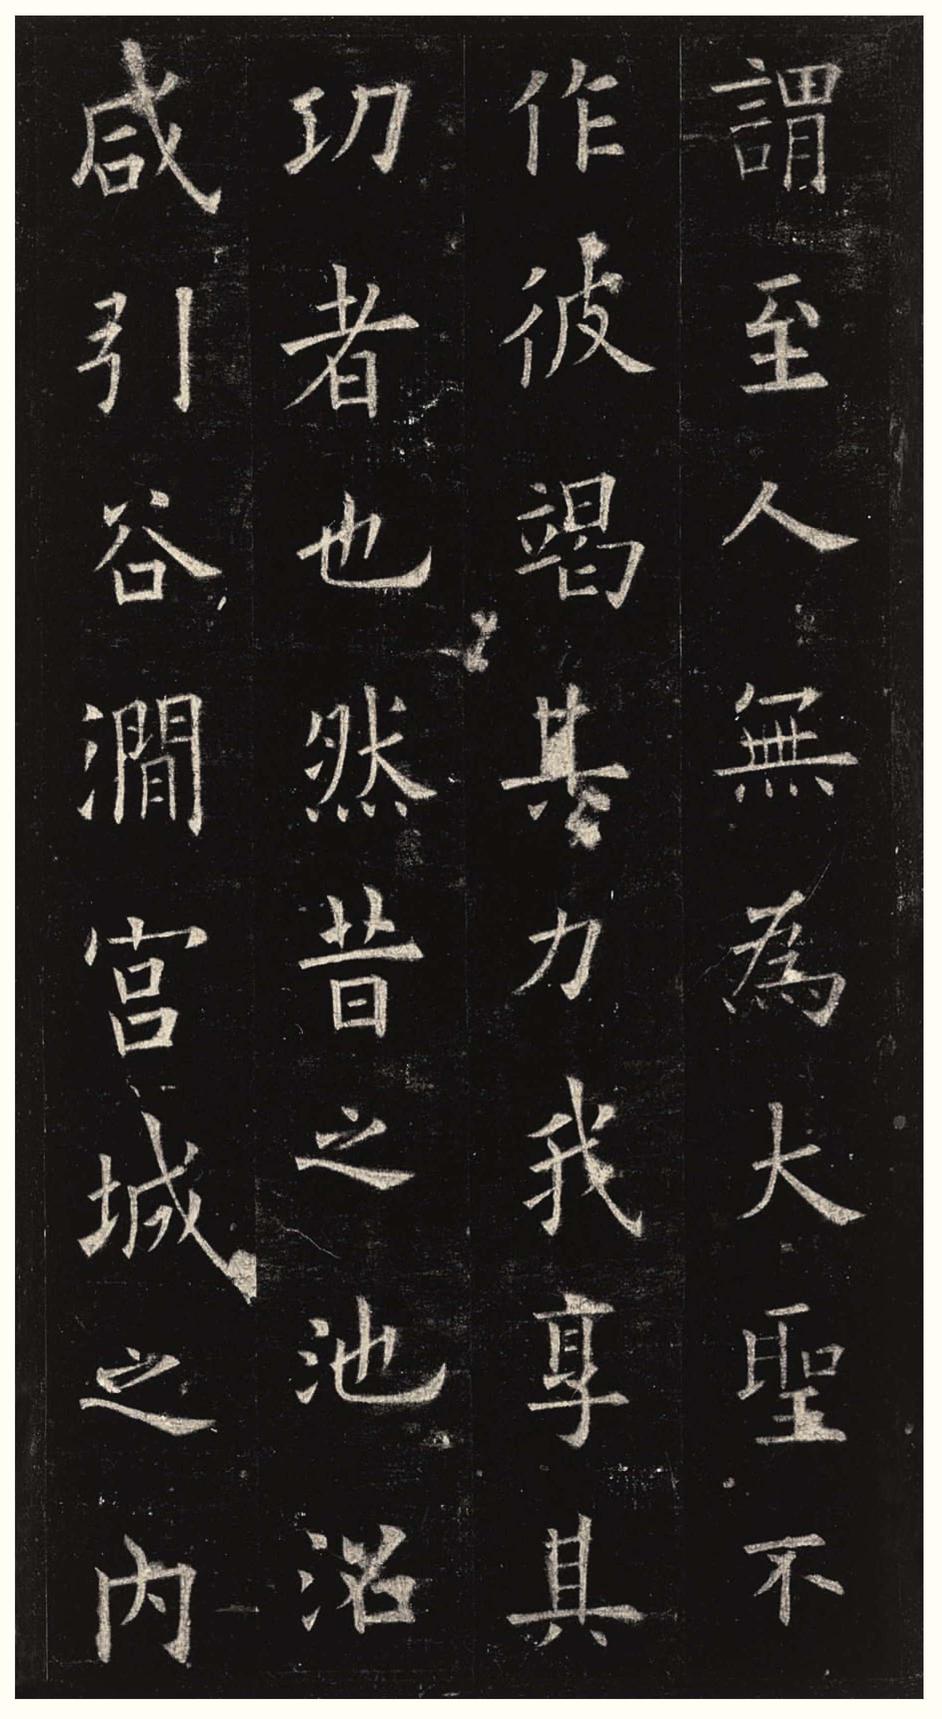 謂至人無為大聖不
作彼竭其力我享其
功者也然昔之池沼
咸引谷澗宮城之內